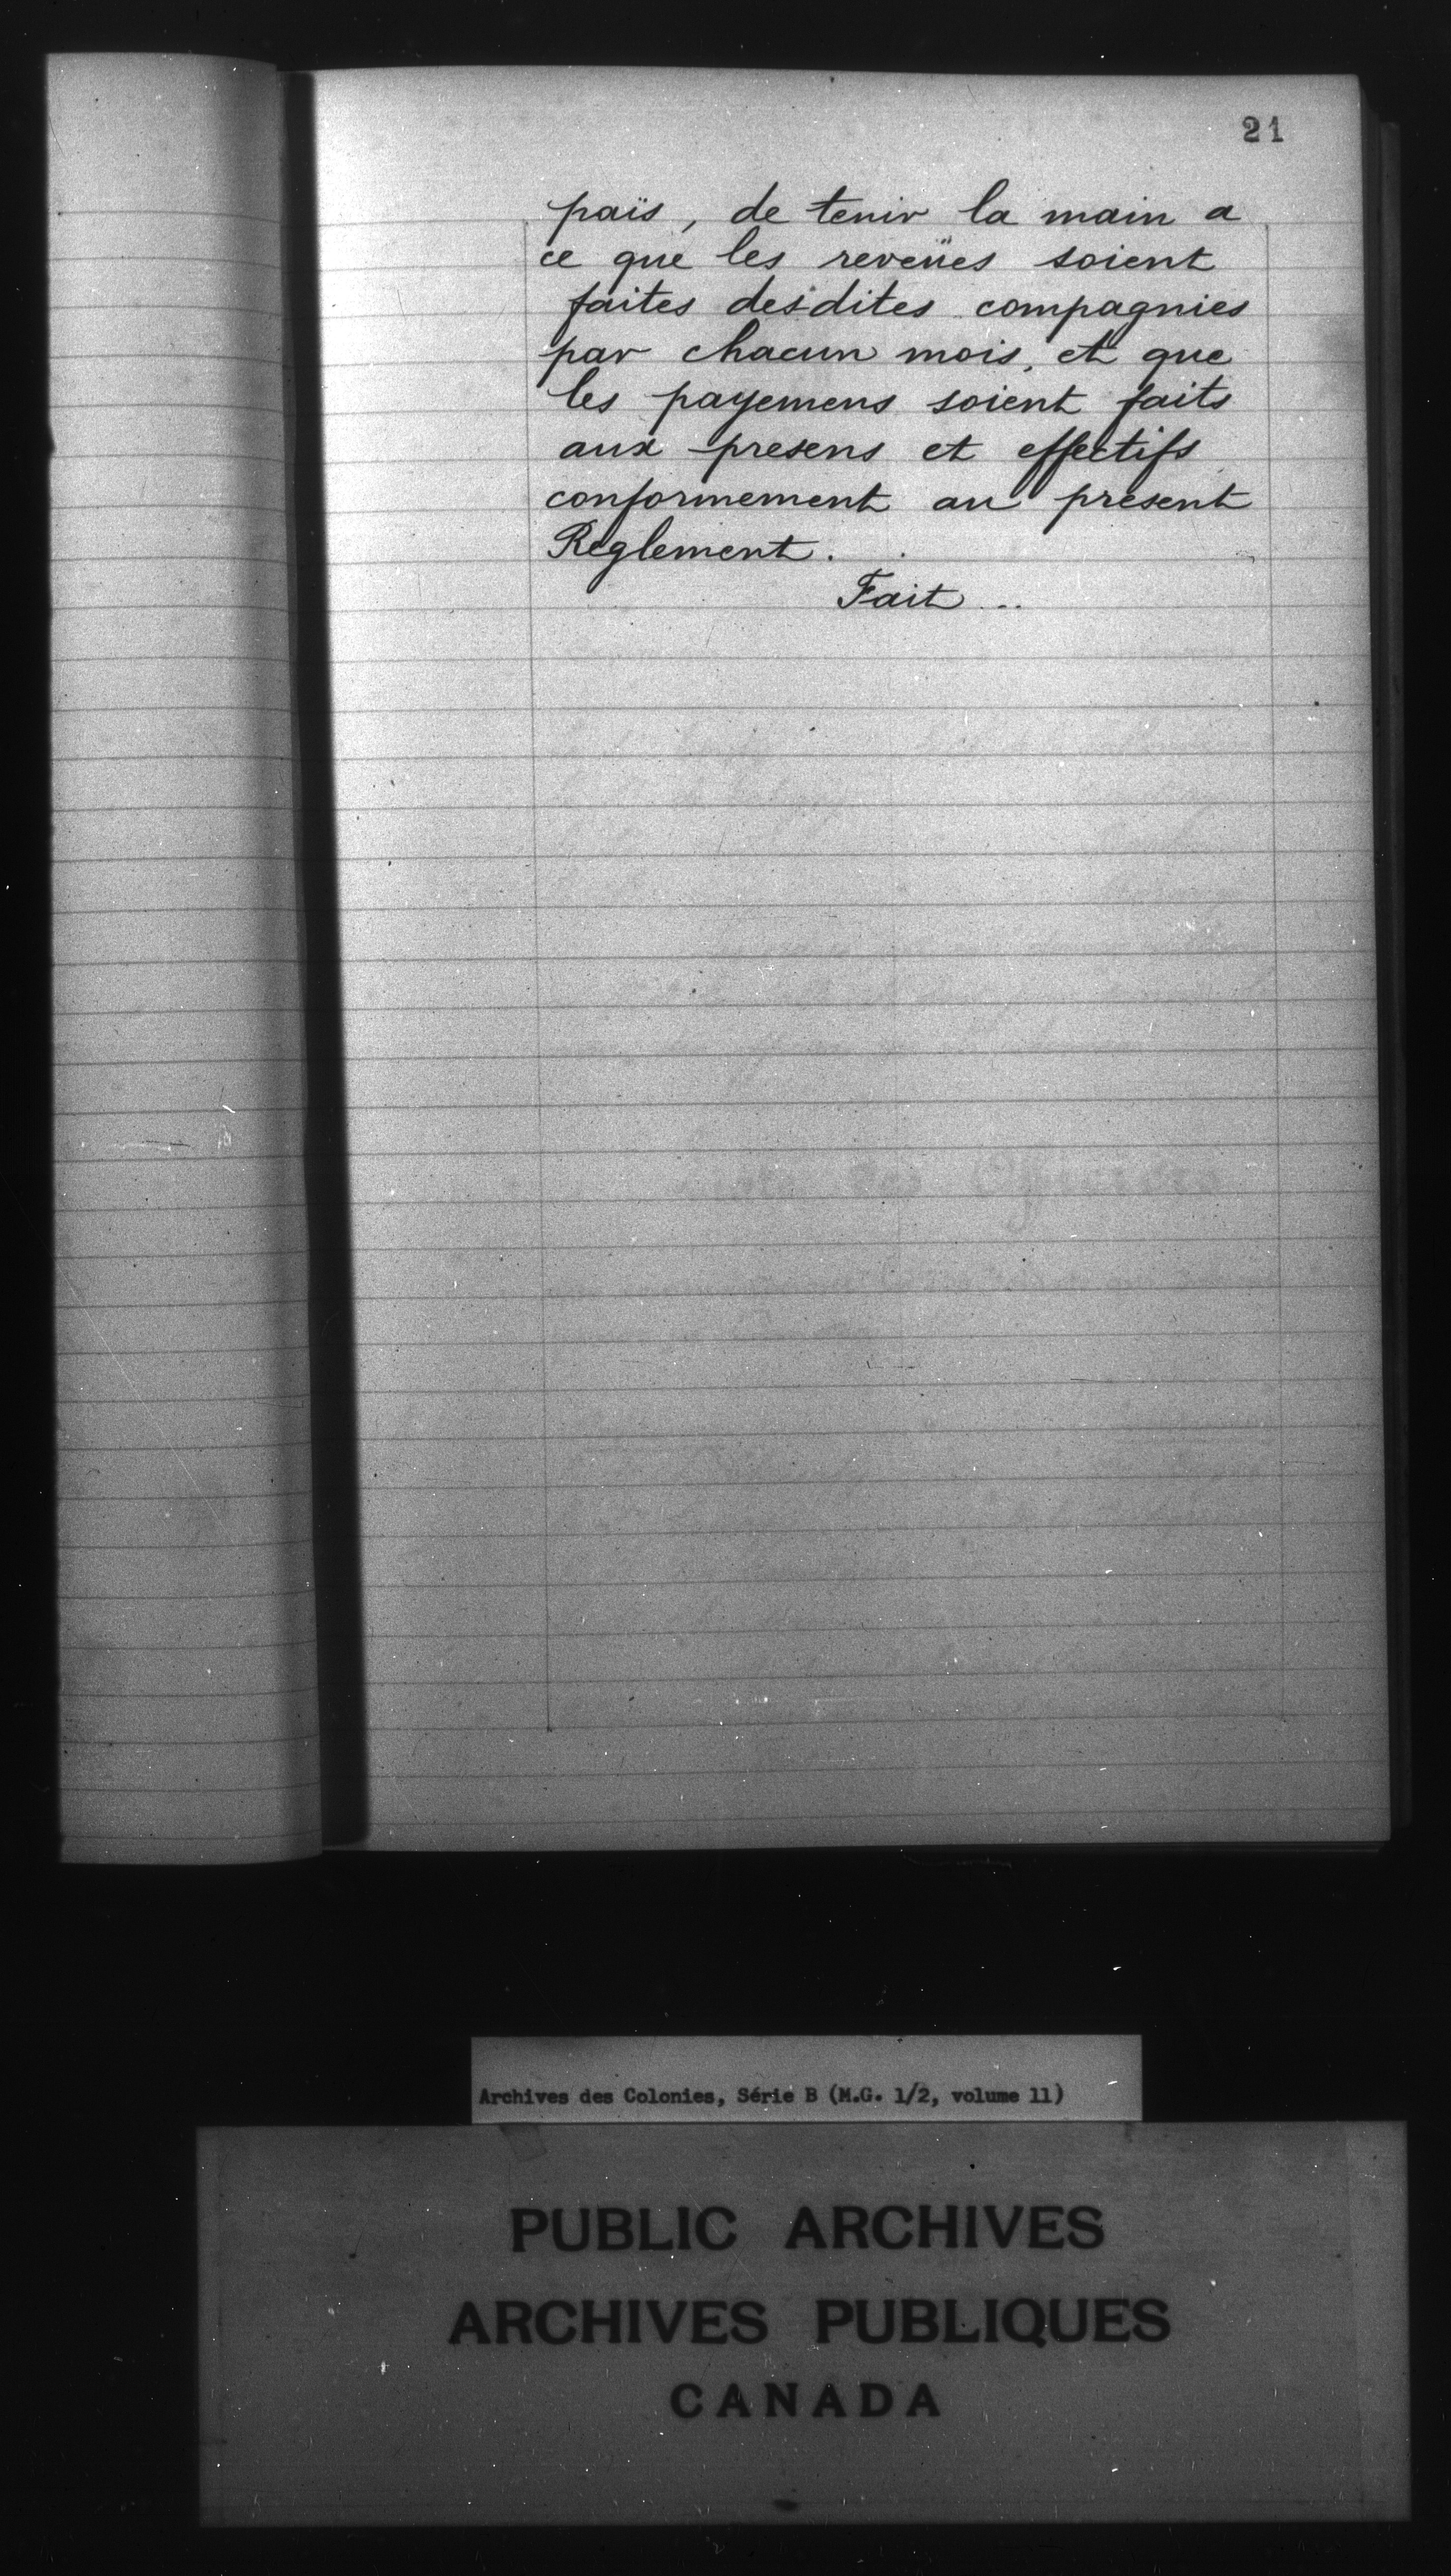 21
païs, de tenir la main a
ce que les reveües soient
faites desdites compagnies
par chacun mois, et que
les payemens soient faits
aux presens et effectifs
conformement au present
Reglement.
Fait ..
Archives des Colonies, Série B (M.G. 1/2, volume 11)
PUBLIC ARCHIVES
ARCHIVES PUBLIQUES
CANADA